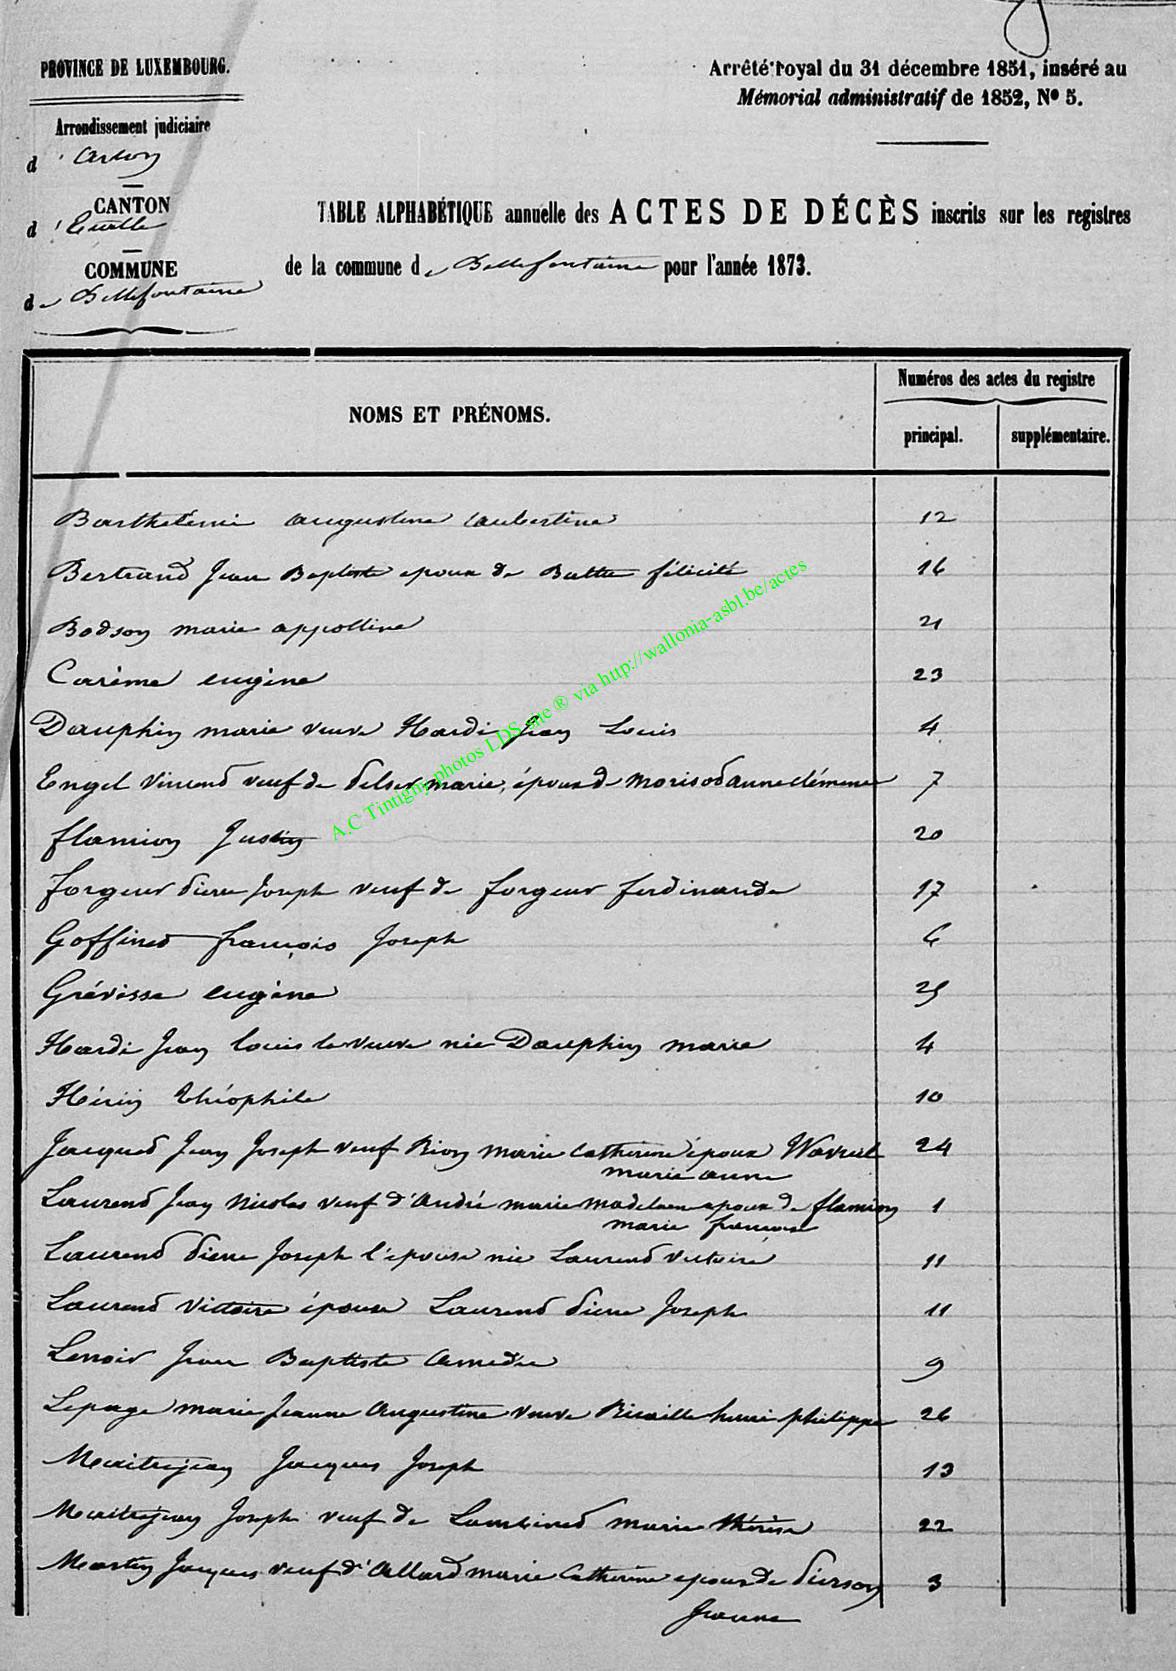 PROVINCE DE LUXEMBOURG.
Arrêté royal du 31 décembre 1851, inséré au
Mémorial administratif de 1852, Nº 5.
Arrondissement judiciaire
d'Arlon
CANTON
d'Etalle
COMMUNE
de Bellefontaine
TABLE ALPHABÉTIQUE annuelle des ACTES DE DÉCÈS inscrits sur les registres
de la commune de Bellefontaine pour l'année 1873.
NOMS ET PRÉNOMS.
Numéros des actes du registre
principal. supplémentaire.
Barthelémi Augustine Caubertine 12
Bertrand Jean Baptiste epoux de Buttu félicité 16
Bodson marie appolline 21
Carème eugène 23
Dauphin marie veuve Hardi Jean Louis 4
Engel Vincend veuf de Pelser marie, époux de morisod anne clémence 7
flamion Justin 20
forgeur pierre Joseph veuf de forgeur ferdinande 17
Goffined françois Joseph 6
Grévisse eugène 25
Hardi Jean louis la veuve née Dauphin marie 4
Hérin théophile 10
Jacqued Jean Joseph veuf Rion marie catherine époux Wavreil 24
marie anne
Laurend Jean Nicolas veuf d'André marie madelaen epoux de flamion 1
marie françoise
Laurend pierre Joseph l'epouse née Laurend victoire 11
Laurend Victoire épouse Laurend pierre Joseph 11
Lenoir Jean Baptiste Amedée 9
Lepage marie Jeanne Augustine veuve Ricaille henri philippe 26
Maitrejean Jacques Joseph 13
Maitrejean Joseph veuf de Lambined marie thérèse 22
Martin Jacques veuf d'Allard marie Catherine epoux de pierson 3
Jeanne
A.C Tintigny photos LDS site ® via http://wallonia-asbl.be/actes